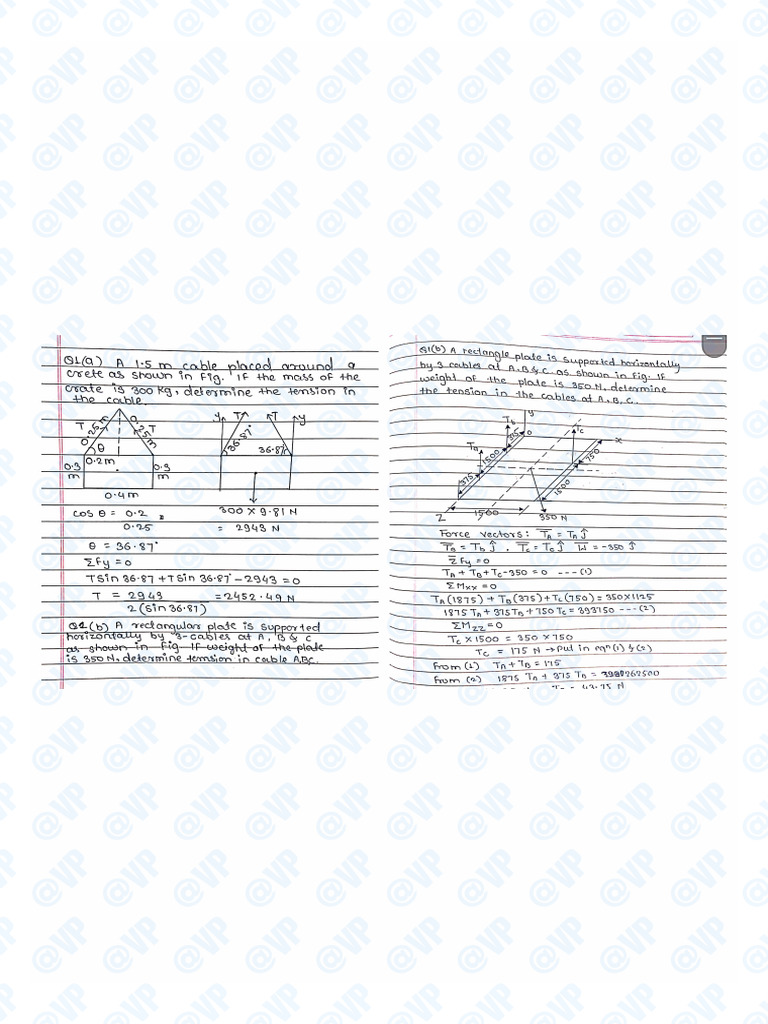 Q1(a) A 1.5 m cable placed around a
crete as shown in Fig. If the mass of the
crate is 300 kg, determine the tension in
the cable.
T 0.25m 0.25m T
θ
0.2m
0.3 m
0.3 m
0.4 m
y T T y
36.87° 36.87°
300 × 9.81 N
= 2943 N
cos θ = 0.2
0.25
θ = 36.87°
ΣFy = 0
T Sin 36.87 + T Sin 36.87 - 2943 = 0
T = 2943 = 2452.49 N
2 (sin 36.87)
Q1(b) A rectangular plate is supported
horizontally by 3-cables at A, B & C
as shown in Fig If weight of the plate
is 350 N, determine tension in cable A,B,C.
Q1(b) A rectangle plate is supported horizontally
by 3 cables at A, B & C. as shown in Fig. If
weight of the plate is 350 N, determine
the tension in the cables at A, B, C.
y
Tb
Tc
375
0
x
Ta
1500
750
375
1500
Z
1500
350 N
Force vectors: TA = TA ĵ
TB = Tb ĵ . TC = Tc ĵ W = -350 ĵ
ΣFy = 0
TA + TB + Tc - 350 = 0 --- (1)
ΣMxx = 0
TA (1875) + TB (375) + Tc (750) = 350×1125
1875 TA + 375 TB + 750 Tc = 393750 --- (2)
ΣMzz = 0
Tc × 1500 = 350 × 750
Tc = 175 N → put in eqn (1) & (2)
From (1) TA + TB = 175
From (2) 1875 TA + 375 TB =
@VP